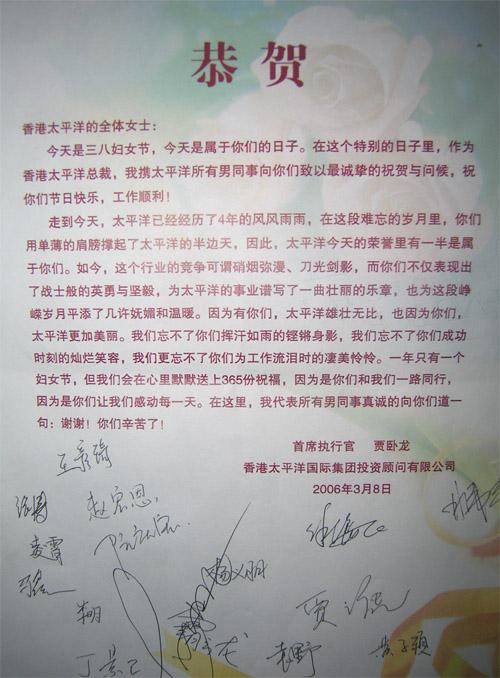 恭贺
香港太平洋的全体女士：
今天是三八妇女节，今天是属于你们的日子。在这个特别的日子里，作为
香港太平洋总裁，我携太平洋所有男同事向你们致以最诚挚的祝贺与问候，祝
你们节日快乐，工作顺利！
走到今天，太平洋已经经历了4年的风风雨雨，在这段难忘的岁月里，你们
用单薄的肩膀撑起了太平洋的半边天，因此，太平洋今天的荣誉里有一半是属
于你们。如今，这个行业的竞争可谓硝烟弥漫、刀光剑影，而你们不仅表现出
了战士般的英勇与坚毅，为太平洋的事业谱写了一曲壮丽的乐章，也为这段峥
嵘岁月平添了几许妩媚和温暖。因为有你们，太平洋雄壮无比，也因为你们，
太平洋更加美丽。我们忘不了你们挥汗如雨的铿锵身影，我们忘不了你们成功
时刻的灿烂笑容，我们更忘不了你们为工作流泪时的凄美怜怜。一年只有一个
妇女节，但我们会在心里默默送上365份祝福，因为是你们和我们一路同行，
因为是你们让我们感动每一天。在这里，我代表所有男同事真诚的向你们道一
句：谢谢！你们辛苦了！
首席执行官 贾卧龙
香港太平洋国际集团投资顾问有限公司
2006年3月8日
赵宏恩
袁野